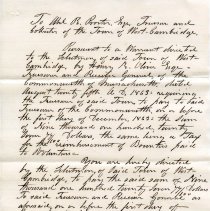 To Abel R. Proctor Esq. Treasurer and
Collector of the Town of West Cambridge.
Pursuant to a Warrant directed
to the Selectmen of said Town of West
Cambridge, by Henry K. Oliver Esq.
Treasurer and Receiver General of the
Commonwealth of Massachusetts, dated
August twenty fifth A.D. 1863: requiring
the Treasurer of said Town, to pay to said
Treasurer of the Commonwealth, on or before
the first day of December 1863: the Sum
of Nine thousand one hundred twenty
Dollars, the same being a Tax
for the reimbursement of Bounties paid
to Volunteers.
You are hereby directed
by the Selectmen of said Town of West
Cambridge, to pay the said sum of Nine
thousand one hundred twenty Dollars
to said Treasurer and Receiver General as
aforesaid, on or before the first day of